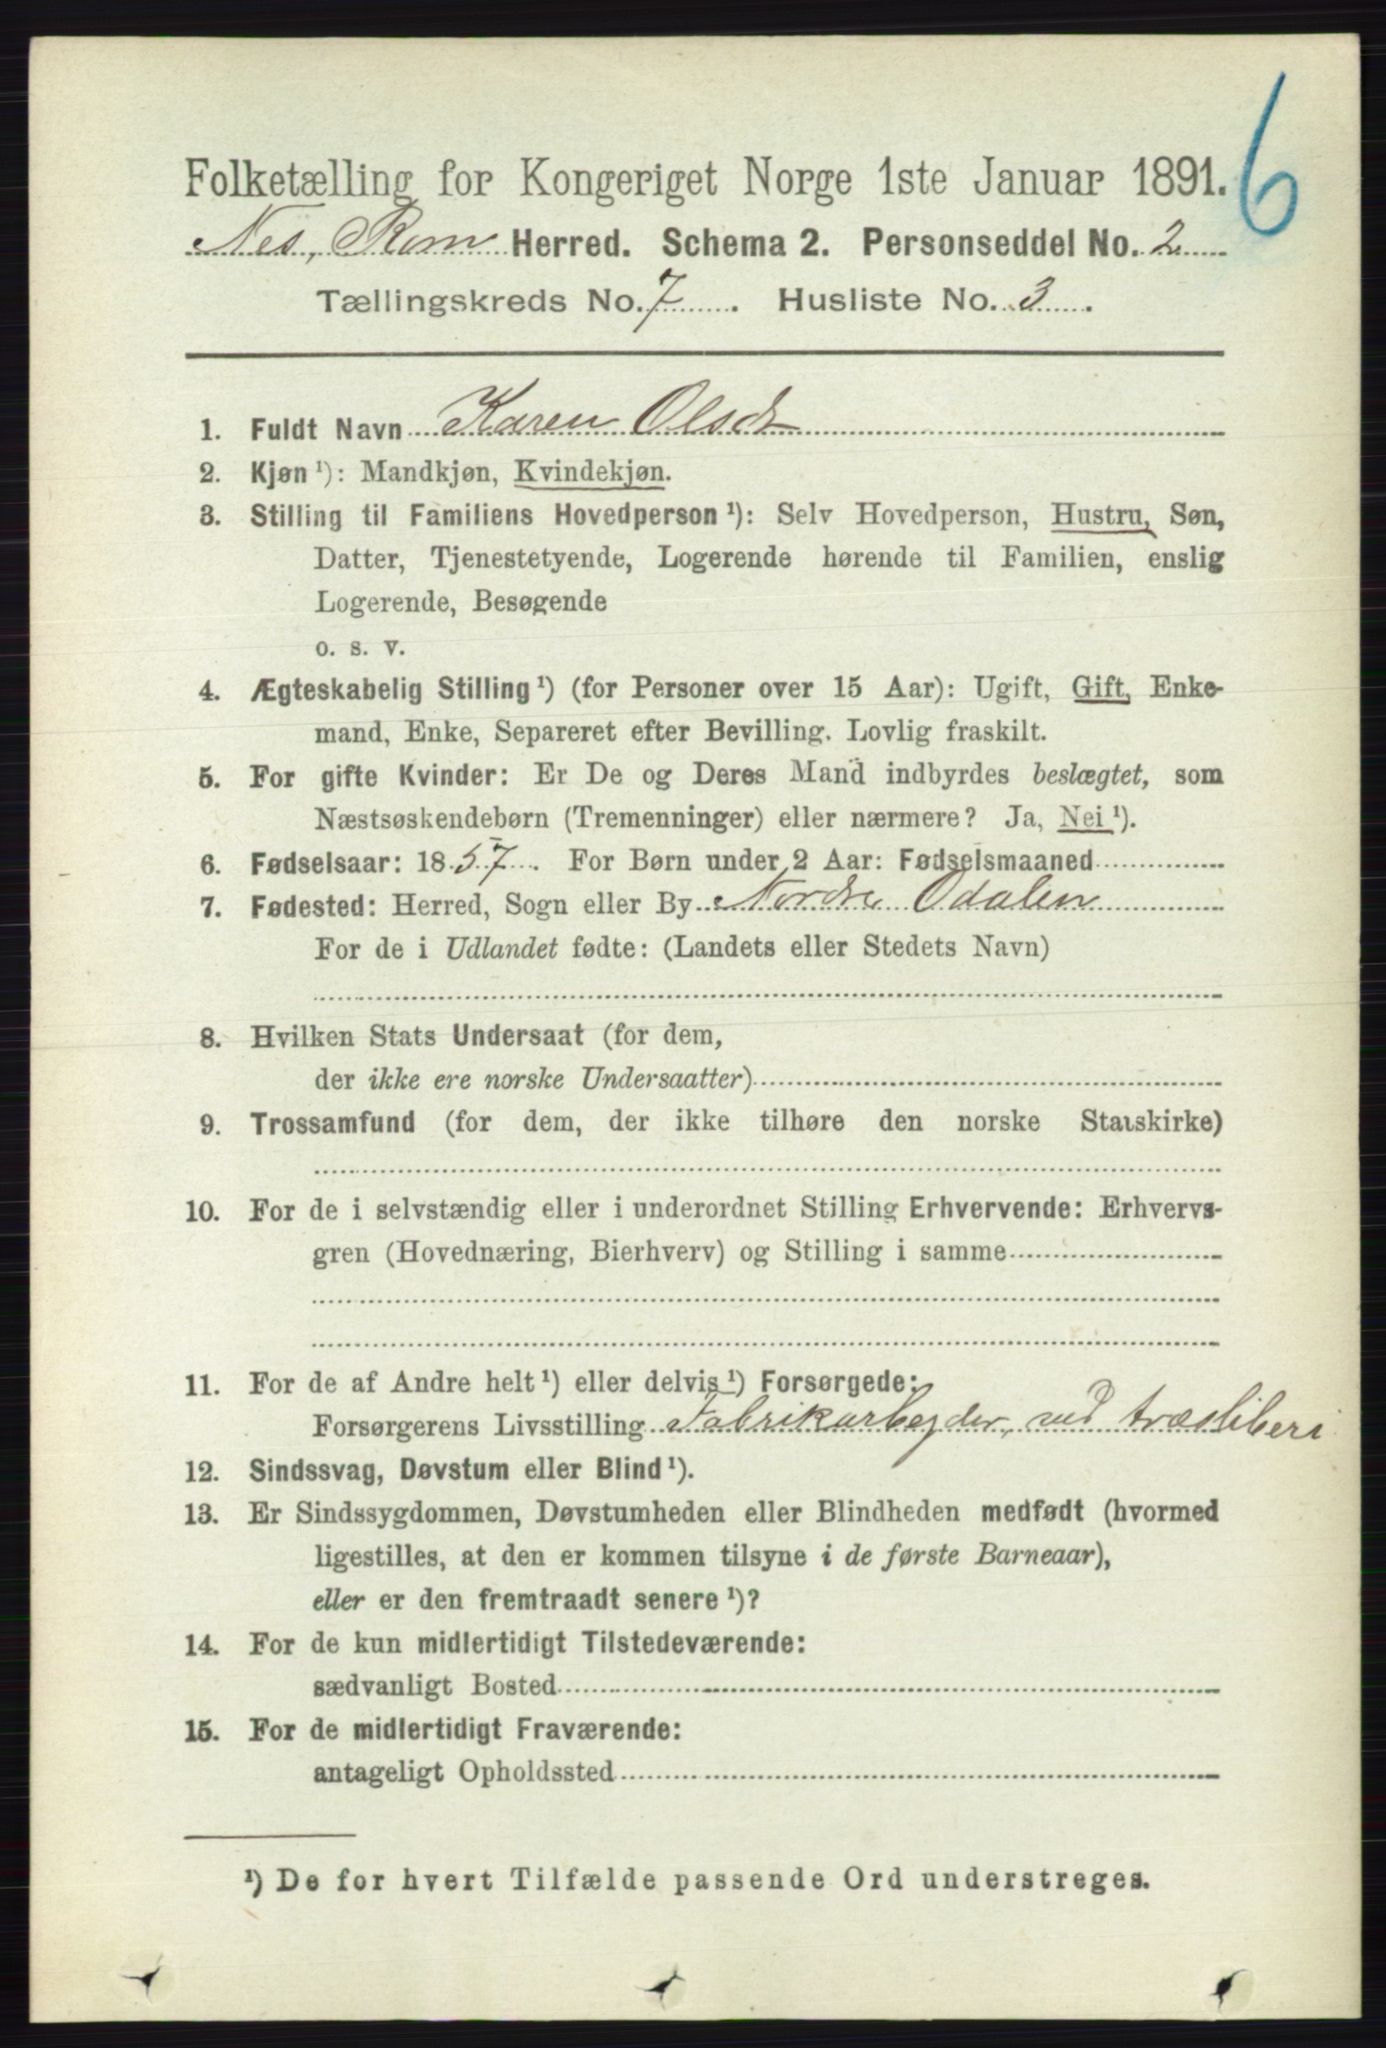 6
Folketælling for Kongeriget Norge 1ste Januar 1891.
Nes, Rom Herred. Schema 2. Personseddel No. 2
Tællingskreds No. 7. Husliste No. 3.
1. Fuldt Navn Karen Olsdt
2. Kjøn ¹): Mandkjøn, Kvindekjøn.
3. Stilling til Familiens Hovedperson ¹): Selv Hovedperson, Hustru, Søn,
Datter, Tjenestetyende, Logerende hørende til Familien, enslig
Logerende, Besøgende
o. s. v.
4. Ægteskabelig Stilling ¹) (for Personer over 15 Aar): Ugift, Gift, Enke-
mand, Enke, Separeret efter Bevilling. Lovlig fraskilt.
5. For gifte Kvinder: Er De og Deres Mand indbyrdes beslægtet, som
Næstsøskendebørn (Tremenninger) eller nærmere? Ja, Nei ¹).
6. Fødselsaar: 1857. For Børn under 2 Aar: Fødselsmaaned
7. Fødested: Herred, Sogn eller By Nordre Odalen
For de i Udlandet fødte: (Landets eller Stedets Navn)
8. Hvilken Stats Undersaat (for dem,
der ikke ere norske Undersaatter)
9. Trossamfund (for dem, der ikke tilhøre den norske Statskirke)
10. For de i selvstændig eller i underordnet Stilling Erhvervende: Erhvervs-
gren (Hovednæring, Bierhverv) og Stilling i samme
11. For de af Andre helt ¹) eller delvis ¹) Forsørgede:
Forsørgerens Livsstilling Fabrikarbejder, ved træsliberi
12. Sindssvag, Døvstum eller Blind ¹).
13. Er Sindssygdommen, Døvstumheden eller Blindheden medfødt (hvormed
ligestilles, at den er kommen tilsyne i de første Barneaar),
eller er den fremtraadt senere ¹)?
14. For de kun midlertidigt Tilstedeværende:
sædvanligt Bosted
15. For de midlertidigt Fraværende:
antageligt Opholdssted
¹) De for hvert Tilfælde passende Ord understreges.